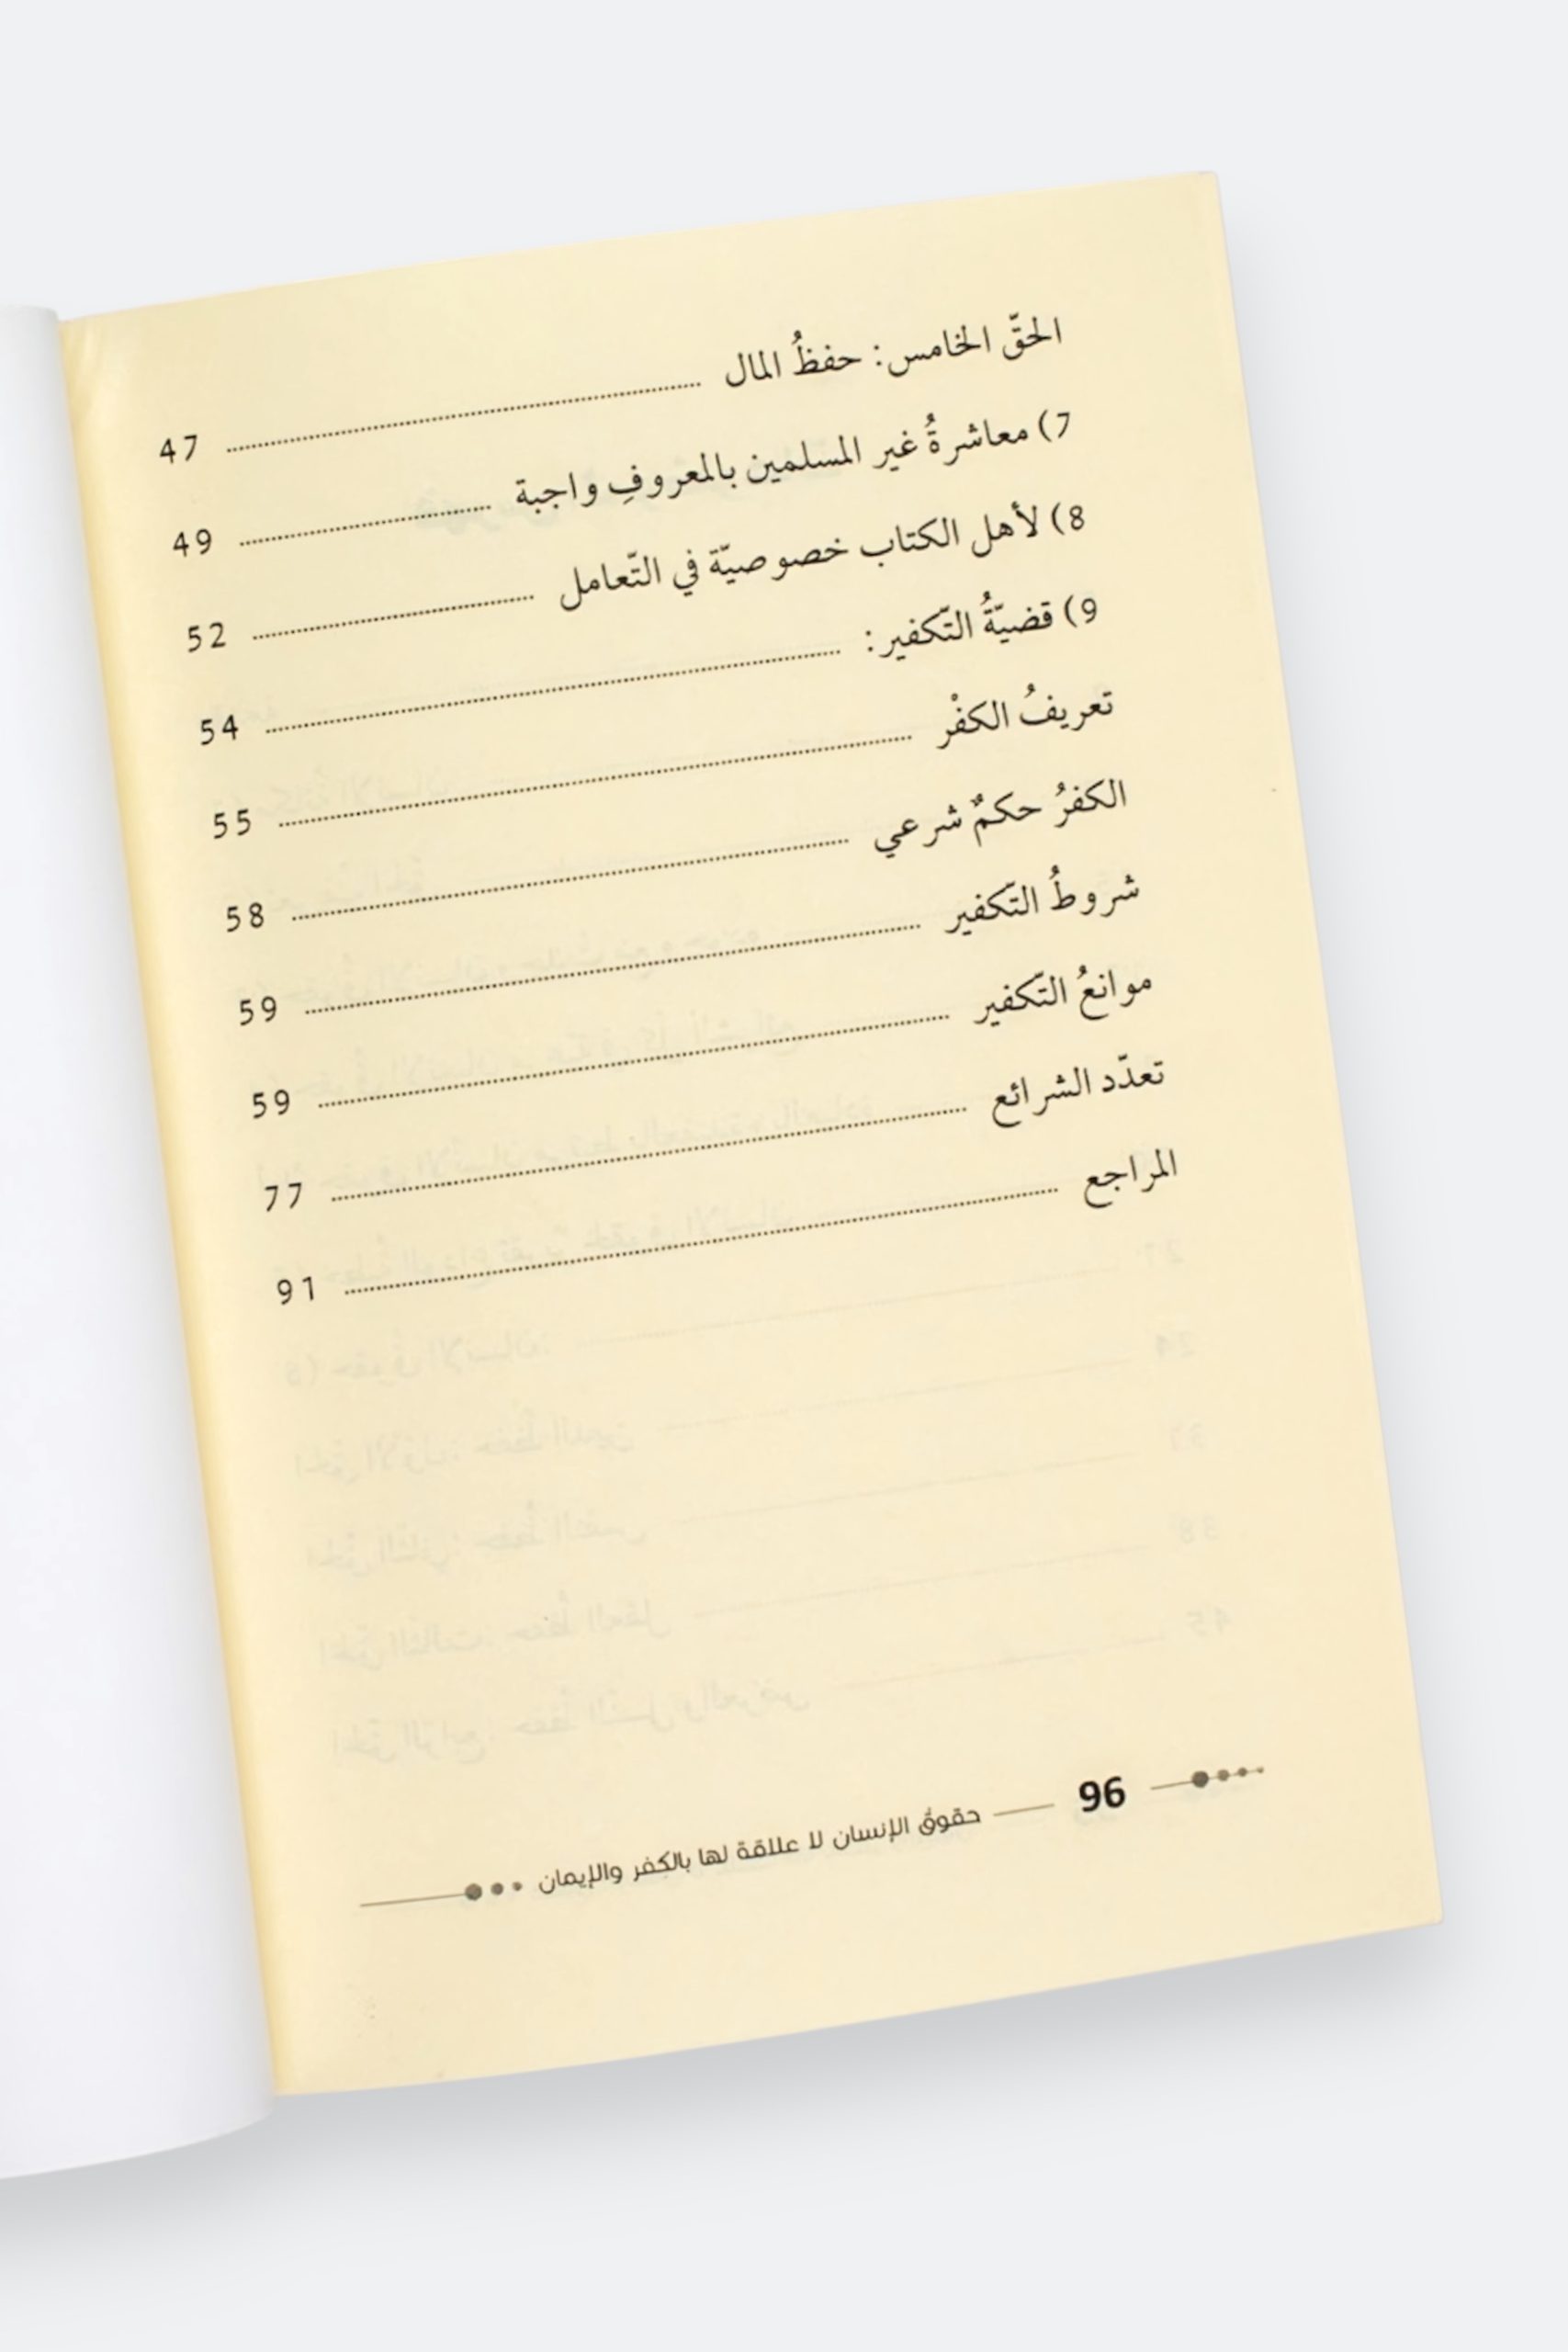 الحقّ الخامس: حفظُ المال ........ 47
7) معاشرةُ غير المسلمين بالمعروفِ واجبة ........ 49
8) لأهل الكتاب خصوصيّة في التّعامل ........ 52
9) قضيّةُ التّكفير: ........ 54
تعريفُ الكفْر ........ 55
الكفرُ حكمٌ شرعي ........ 58
شروطُ التّكفير ........ 59
موانعُ التّكفير ........ 59
تعدّد الشرائع ........ 77
المراجع ........ 91
96 حقوق الإنسان لا علاقة لها بالكفر والإيمان